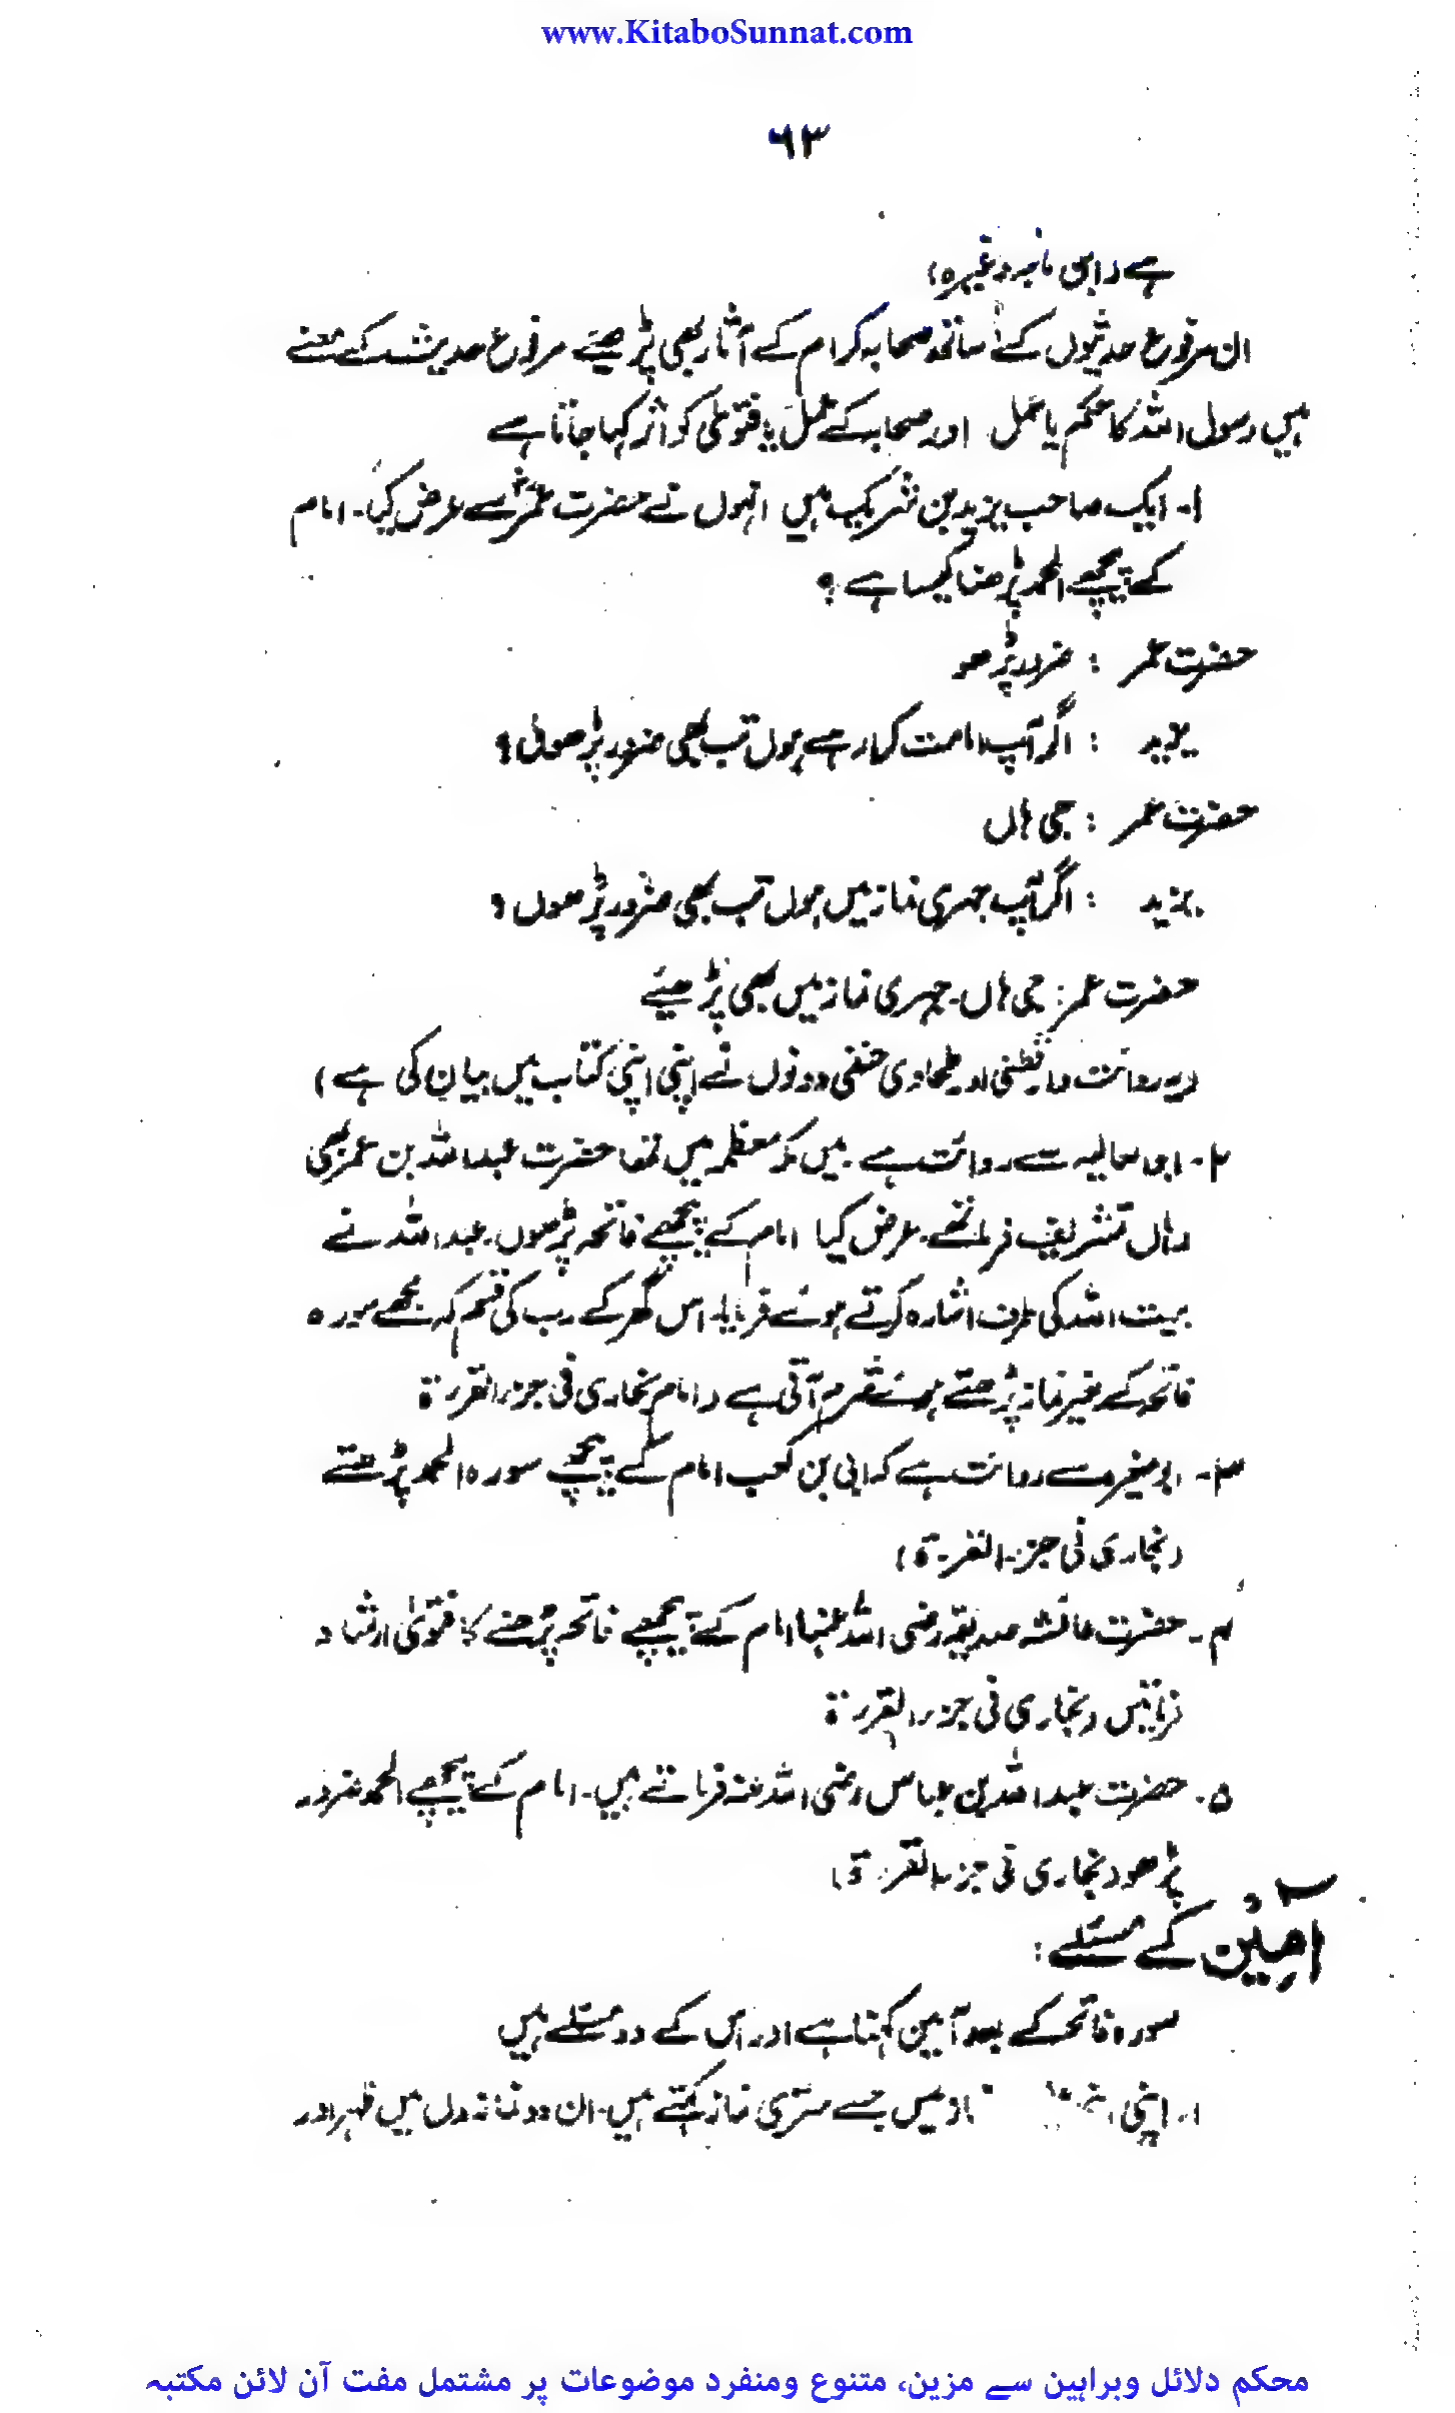 www.KitaboSunnat.com
۶۳
ہے (ابن ماجہ وغیرہ)
ان مرفوع حدیثوں کے ساتھ صحابہ کرام کے آثار بھی پڑھیئے مرفوع حدیث کے معنے
ہیں رسول اللہ کا حکم یا عمل اور صحابہ کے عمل یا فتویٰ کو اثر کہا جاتا ہے
۱۔ ایک صاحب یزید بن شریک ہیں انہوں نے حضرت عمرؓ سے عرض کیا۔ امام
کے پیچھے الحمد پڑھنا کیسا ہے ؟
حضرت عمر : ضرور پڑھو
یزید : اگر آپ امامت کرا رہے ہوں تب بھی ضرور پڑھوں ؟
حضرت عمر : جی ہاں
یزید : اگر آپ جہری نماز میں ہوں تب بھی ضرور پڑھوں ؟
حضرت عمر : جی ہاں۔ جہری نماز میں بھی پڑھیئے
(یہ روائت دارقطنی اور طحاوی حنفی دونوں نے اپنی اپنی کتاب میں بیان کی ہے)
۲۔ ابو عالیہ سے روائت ہے۔ میں مکہ معظمہ میں تھا حضرت عبداللہ بن عمر بھی
وہاں تشریف فرما تھے۔ عرض کیا امام کے پیچھے فاتحہ پڑھوں۔ عبداللہ نے
بیت اللہ کی طرف اشارہ کرتے ہوئے فرمایا۔ اس گھر کے رب کی قسم کہ مجھے سورہ
فاتحہ کے بغیر نماز پڑھتے ہوئے شرم آتی ہے (امام بخاری فی جزء القرءۃ
۳۔ ابو مغیرہ سے روائت ہے کہ ابی بن کعب امام کے پیچھے سورہ الحمد پڑھتے
(بخاری فی جزء القرءۃ)
۴۔ حضرت عائشہ صدیقہ رضی اللہ عنہا امام کے پیچھے فاتحہ پڑھنے کا فتویٰ ارشاد
فرماتیں (بخاری فی جزء القرءۃ
۵۔ حضرت عبداللہ بن عباس رضی اللہ عنہ فرماتے ہیں۔ امام کے پیچھے الحمد ضرور
پڑھو (بخاری فی جزء القرءۃ)
آمین کے مسئلے :
سورہ فاتحہ کے بعد آمین کہنا ہے اور اس کے دو مسئلے ہیں
۱۔ اپنی نماز میں جسے سرّی نماز کہتے ہیں۔ ان دو نمازوں میں ظہر اور
محکم دلائل وبراہین سے مزین، متنوع ومنفرد موضوعات پر مشتمل مفت آن لائن مکتبہ